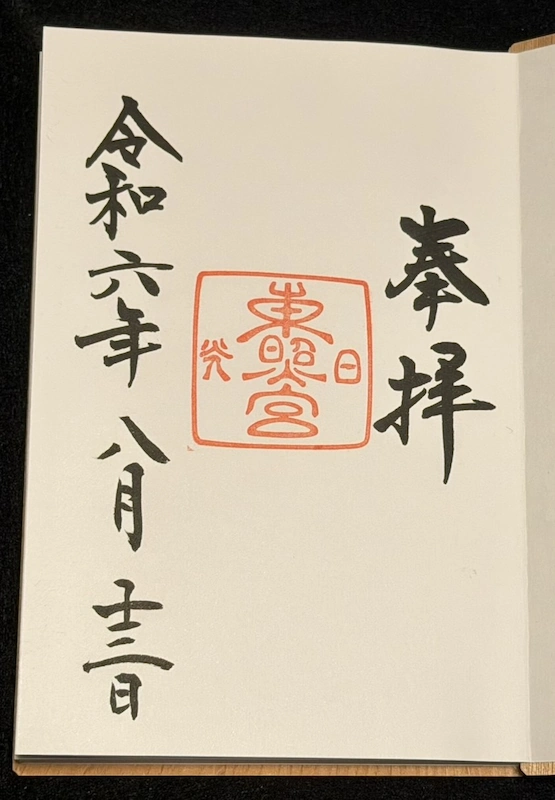 奉拝
日光
東照宮
令和六年八月十三日